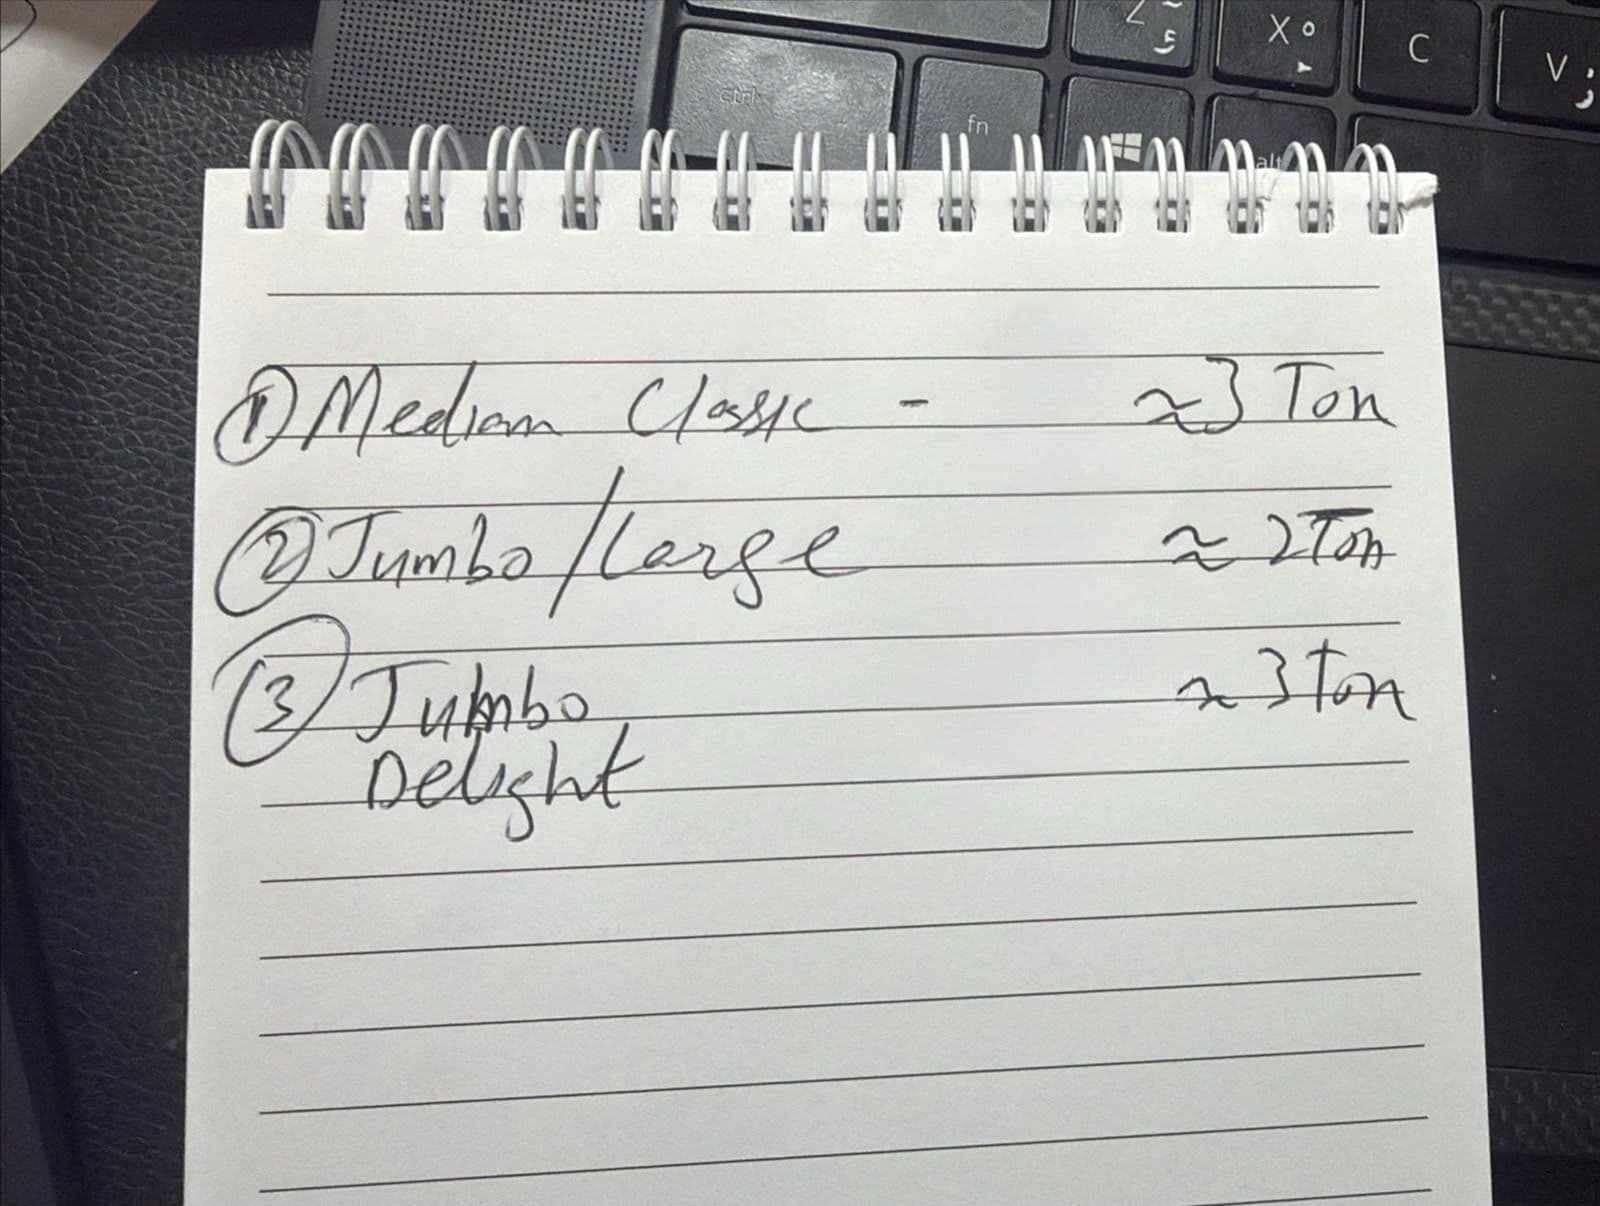 ctrl
fn
alt
Z
X
C
V
① Mediam Classic - ≈3 Ton
② Jumbo/Large ≈ 2Ton
③ Jumbo ≈ 3 Ton
Delight